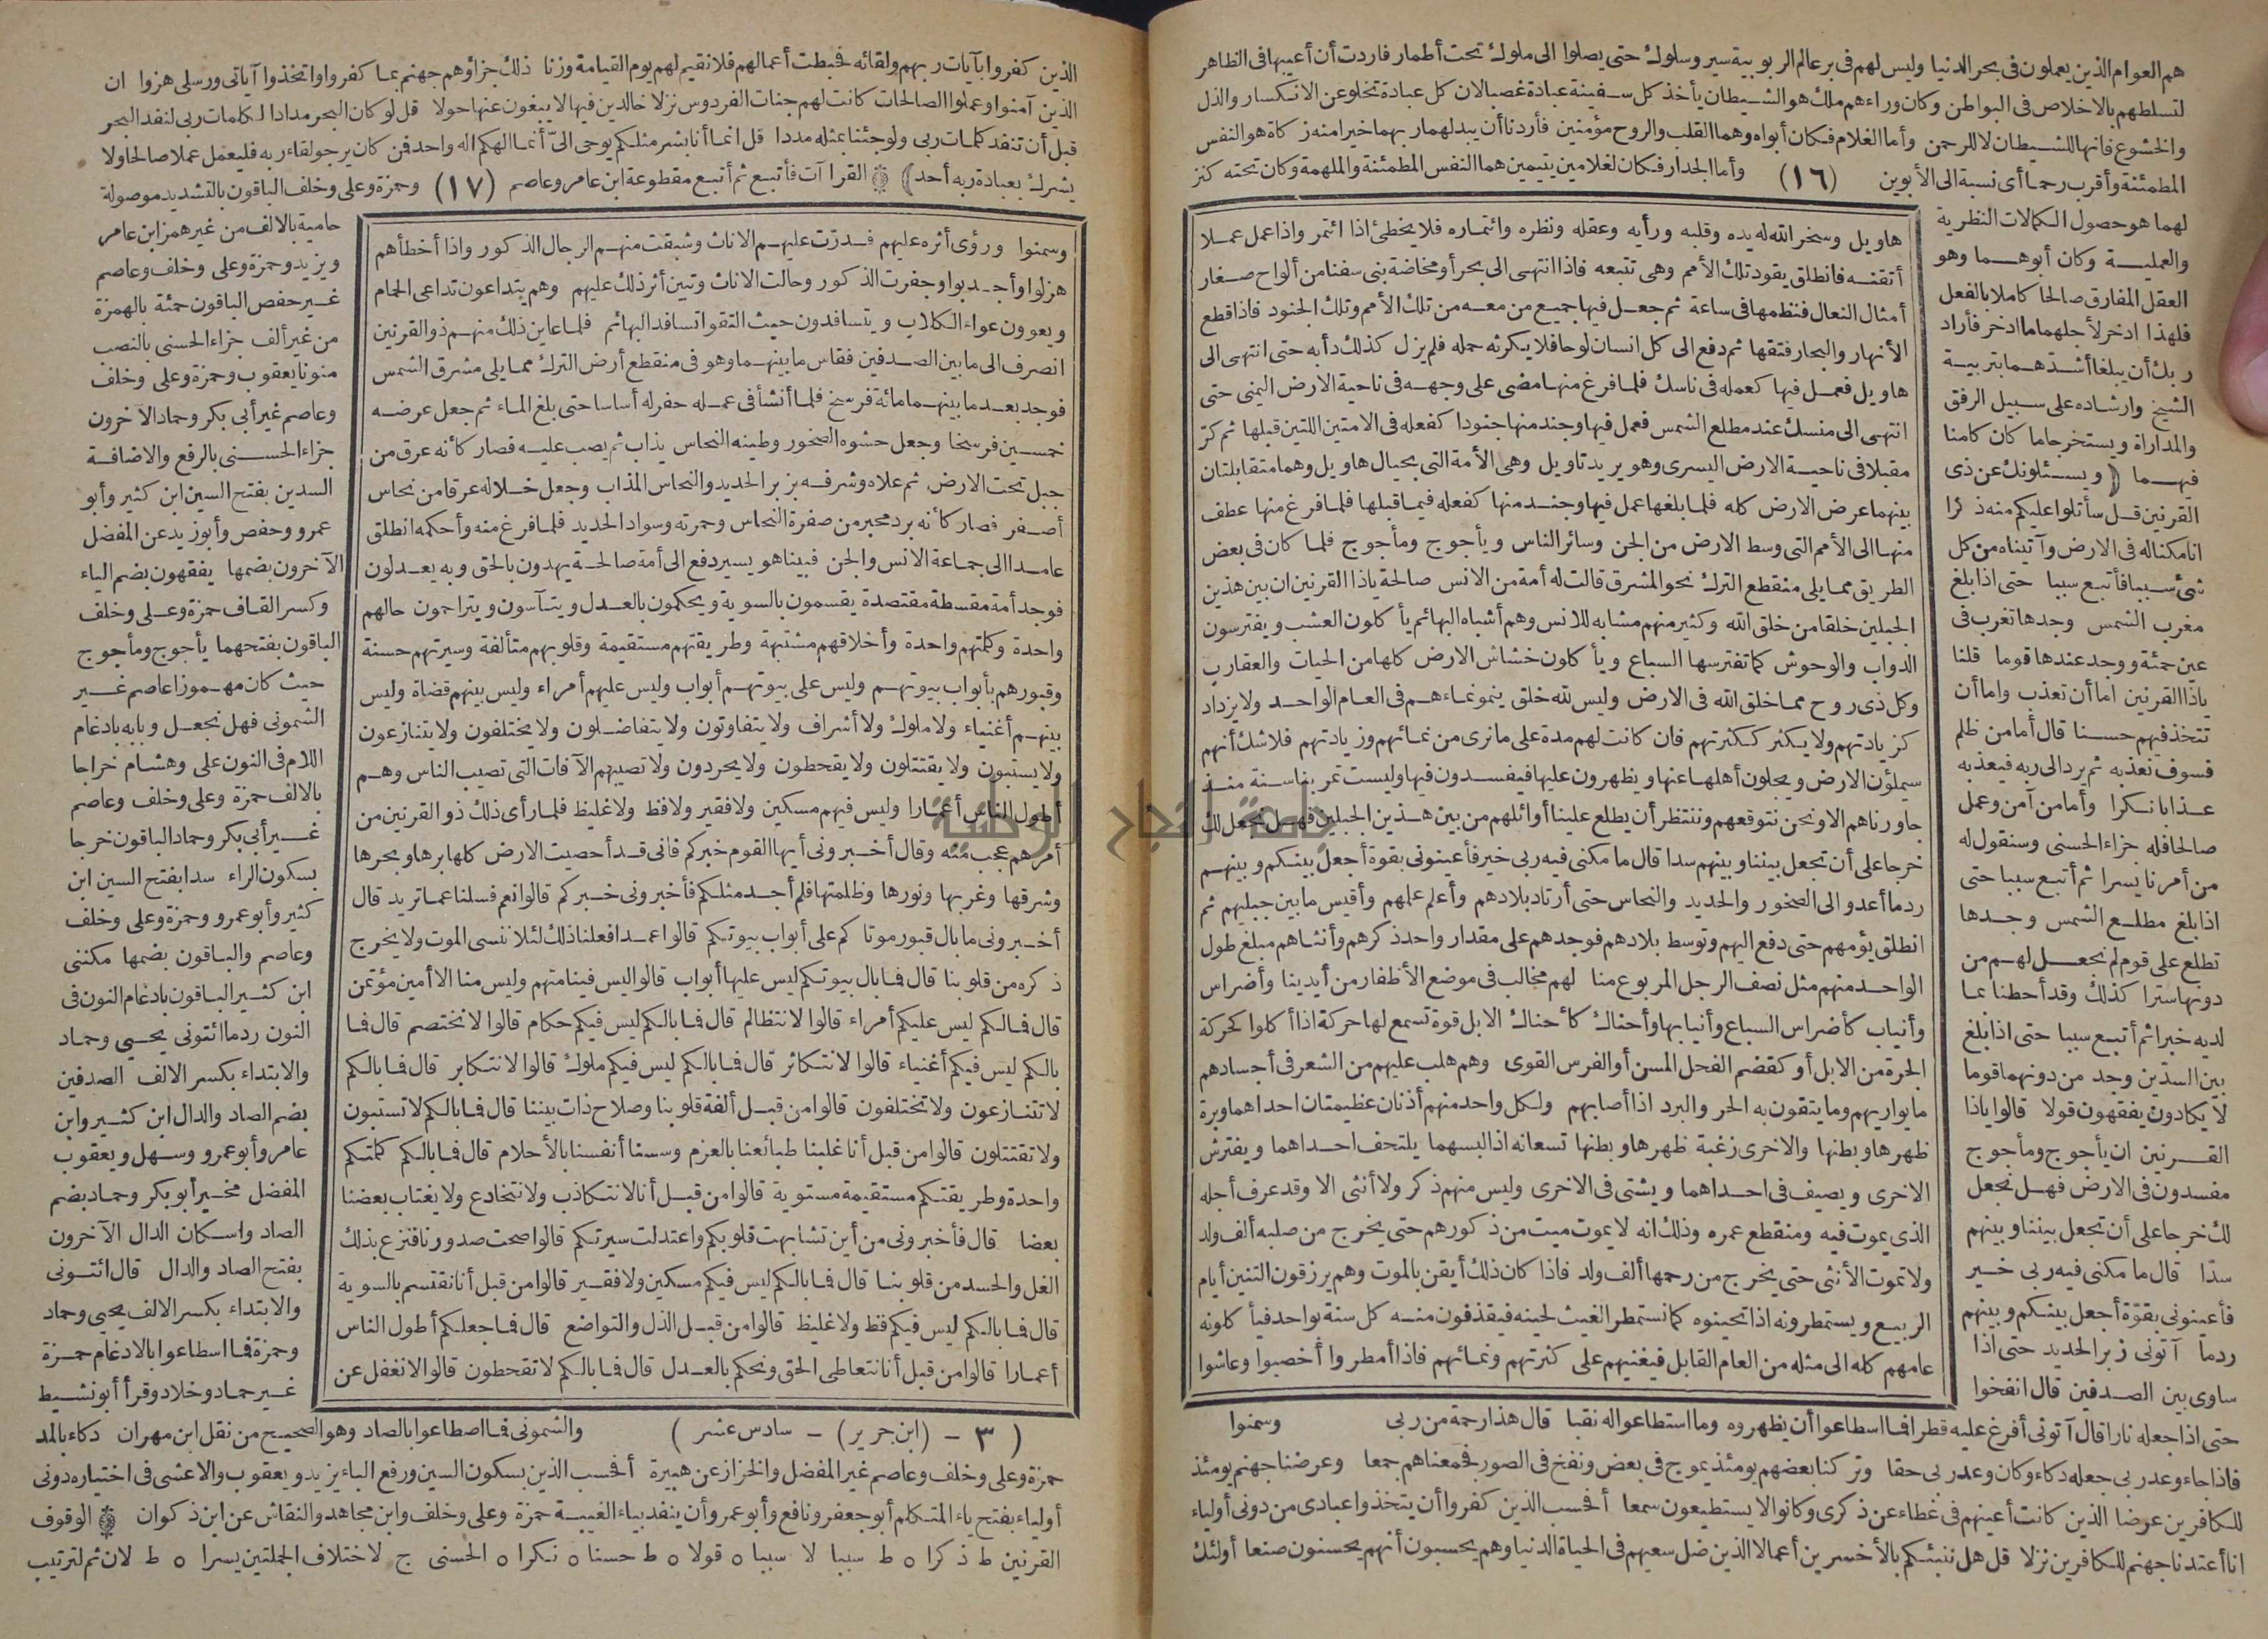 هم العوام الذين يعملون فى بحر الدنيا وليس لهم فى بر عالم الربوبية سير وسلوك حتى يصلوا الى ملوك تحت أطمار فاردت أن أعيبها فى الظاهر
لتسلطهم بالاخلاص فى البواطن وكان وراءهم ملك هو الشيطان يأخذ كل سفينة عبادة غصبا لان كل عبادة تخلو عن الانكسار والذل
والخشوع فانها للشيطان لا للرحمن وأما الغلام فكان أبواه وهما القلب والروح مؤمنين فأردنا أن يبدلهما ربهما خيرا منه زكاة هو النفس
المطمئنة وأقرب رحما أى نسبة الى الأبوين (١٦) وأما الجدار فكان لغلامين يتيمين هما النفس المطمئنة والملهمة وكان تحته كنز
لهما هو حصول الكمالات النظرية
والعملية وكان أبوهما وهو
العقل المفارق صالحا كاملا بالفعل
فلهذا ادخر لأجلهما ما ادخر فأراد
ربك أن يبلغا أشدهما بتربية
الشيخ وارشاده على سبيل الرفق
والمداراة ويستخرجا ما كان كامنا
فيهما ﴿ ويسئلونك عن ذى
القرنين قل سأتلوا عليكم منه ذكرا
انا مكنا له فى الارض وآتيناه من كل
شئ سببا فأتبع سببا حتى اذا بلغ
مغرب الشمس وجدها تغرب فى
عين حمئة ووجد عندها قوما قلنا
ياذا القرنين اما أن تعذب واما أن
تتخذ فيهم حسنا قال أما من ظلم
فسوف نعذبه ثم يرد الى ربه فيعذبه
عذابا نكرا وأما من آمن وعمل
صالحا فله جزاء الحسنى وسنقول له
من أمرنا يسرا ثم أتبع سببا حتى
اذا بلغ مطلع الشمس وجدها
تطلع على قوم لم نجعل لهم من
دونها سترا كذلك وقد أحطنا بما
لديه خبرا ثم أتبع سببا حتى اذا بلغ
بين السدين وجد من دونهما قوما
لا يكادون يفقهون قولا قالوا ياذا
القرنين ان يأجوج ومأجوج
مفسدون فى الارض فهل نجعل
لك خرجا على أن تجعل بيننا وبينهم
سدا قال ما مكنى فيه ربى خير
فأعينونى بقوة أجعل بينكم وبينهم
ردما آتونى زبر الحديد حتى اذا
ساوى بين الصدفين قال انفخوا
هاويل وسخر الله له يده وقلبه ورأيه وعقله ونظره وائتماره فلا يخطئ اذا ائتمر واذا عمل عملا
أتقنه فانطلق يقود تلك الأمم وهى تتبعه فاذا انتهى الى بحر أو مخاضة بنى سفنا من ألواح صغار
أمثال النعال فنظمها فى ساعة ثم جعل فيها جميع من معه من تلك الأمم وتلك الجنود فاذا قطع
الأنهار والبحار فتقها ثم دفع الى كل انسان لوحا فلا يكرثه حمله فلم يزل كذلك دأبه حتى انتهى الى
هاويل فعمل فيها كعمله فى ناسك فلما فرغ منها مضى على وجهه فى ناحية الارض اليمنى حتى
انتهى الى منسك عند مطلع الشمس فعمل فيها وجند منها جنودا كفعله فى الامتين اللتين قبلها ثم كر
مقبلا فى ناحية الارض اليسرى وهو يريد تاويل وهى الأمة التى بحيال هاويل وهما متقابلتان
بينهما عرض الارض كله فلما بلغها عمل فيها وجند منها كفعله فيما قبلها فلما فرغ منها عطف
منها الى الأمم التى وسط الارض من الجن وسائر الناس ويأجوج ومأجوج فلما كان فى بعض
الطريق مما يلى منقطع الترك نحو المشرق قالت له أمة من الانس صالحة ياذا القرنين ان بين هذين
الجبلين خلقا من خلق الله وكثير منهم مشابه للانس وهم أشباه البهائم يأكلون العشب ويفترسون
الدواب والوحوش كما تفترسها السباع ويأكلون خشاش الارض كلها من الحيات والعقارب
وكل ذى روح مما خلق الله فى الارض وليس لله خلق ينمو نماءهم فى العام الواحد ولا يزداد
كزيادتهم ولا يكثر ككثرتهم فان كانت لهم مدة على ما نرى من نمائهم وزيادتهم فلا شك أنهم
سيملؤن الارض ويجلون أهلها عنها ويظهرون عليها فيفسدون فيها وليست تمر بنا سنة منذ
جاورناهم الا ونحن نتوقعهم وننتظر أن يطلع علينا أوائلهم من بين هذين الجبلين فهل نجعل لك
خرجا على أن تجعل بيننا وبينهم سدا قال ما مكنى فيه ربى خير فأعينونى بقوة أجعل بينكم وبينهم
ردما أعدوا الى الصخور والحديد والنحاس حتى أرتاد بلادهم وأعلم علمهم وأقيس ما بين جبليهم ثم
انطلق يؤمهم حتى دفع اليهم وتوسط بلادهم فوجدهم على مقدار واحد ذكرهم وأنثاهم مبلغ طول
الواحد منهم مثل نصف الرجل المربوع منا لهم مخالب فى موضع الأظفار من أيدينا وأضراس
وأنياب كأضراس السباع وأنيابها وأحناك كأحناك الابل قوة تسمع لها حركة اذا أكلوا كحركة
الجرة من الابل أو كقضم الفحل المسن أو الفرس القوى وهم هلب عليهم من الشعر فى أجسادهم
ما يواريهم وما يتقون به الحر والبرد اذا أصابهم ولكل واحد منهم أذنان عظيمتان احداهما وبرة
ظهرها وبطنها والاخرى زغبة ظهرها وبطنها تسعانه اذا لبسهما يلتحف احداهما ويفترش
الاخرى ويصيف فى احداهما ويشتى فى الاخرى وليس منهم ذكر ولا أنثى الا وقد عرف أجله
الذى يموت فيه ومنقطع عمره وذلك انه لا يموت ميت من ذكورهم حتى يخرج من صلبه ألف ولد
ولا تموت الأنثى حتى يخرج من رحمها ألف ولد فاذا كان ذلك أيقن بالموت وهم يرزقون التنين أيام
الربيع ويستمطرونه اذا تحينوه كما نستمطر الغيث لحينه فيقذفون منه كل سنة بواحد فيأكلونه
عامهم كله الى مثله من العام القابل فيغنيهم على كثرتهم ونمائهم فاذا أمطروا أخصبوا وعاشوا
حتى اذا جعله نارا قال آتونى أفرغ عليه قطرا فما اسطاعوا أن يظهروه وما استطاعوا له نقبا قال هذا رحمة من ربى وسمنوا
فاذا جاء وعد ربى جعله دكاء وكان وعد ربى حقا وتركنا بعضهم يومئذ يموج فى بعض ونفخ فى الصور فجمعناهم جمعا وعرضنا جهنم يومئذ
للكافرين عرضا الذين كانت أعينهم فى غطاء عن ذكرى وكانوا لا يستطيعون سمعا أفحسب الذين كفروا أن يتخذوا عبادى من دونى أولياء
انا أعتدنا جهنم للكافرين نزلا قل هل ننبئكم بالأخسرين أعمالا الذين ضل سعيهم فى الحياة الدنيا وهم يحسبون أنهم يحسنون صنعا أولئك
الذين كفروا بآيات ربهم ولقائه فحبطت أعمالهم فلا نقيم لهم يوم القيامة وزنا ذلك جزاؤهم جهنم بما كفروا واتخذوا آياتى ورسلى هزوا ان
الذين آمنوا وعملوا الصالحات كانت لهم جنات الفردوس نزلا خالدين فيها لا يبغون عنها حولا قل لو كان البحر مدادا لكلمات ربى لنفد البحر
قبل أن تنفد كلمات ربى ولو جئنا بمثله مددا قل انما أنا بشر مثلكم يوحى الىّ أنما الهكم اله واحد فمن كان يرجو لقاء ربه فليعمل عملا صالحا ولا
يشرك بعبادة ربه أحدا﴾ القراآت فأتبع ثم أتبع مقطوعة ابن عامر وعاصم (١٧) وحمزة وعلى وخلف الباقون بالتشديد موصولة
وسمنوا ورؤى أثره عليهم فدرّت عليهم الاناث وشبقت منهم الرجال الذكور واذا أخطأهم
هزلوا وأجدبوا وجفرت الذكور وحالت الاناث وتبين أثر ذلك عليهم وهم يتداعون تداعى الحمام
ويعوون عواء الكلاب ويتسافدون حيث التقوا تسافد البهائم فلما عاين ذلك منهم ذو القرنين
انصرف الى ما بين الصدفين فقاس ما بينهما وهو فى منقطع أرض الترك مما يلى مشرق الشمس
فوجد بعد ما بينهما مائة فرسخ فلما أنشأ فى عمله حفر له أساسا حتى بلغ الماء ثم جعل عرضه
خمسين فرسخا وجعل حشوه الصخور وطينه النحاس يذاب ثم يصب عليه فصار كأنه عرق من
جبل تحت الارض ثم علاه وشرفه بزبر الحديد والنحاس المذاب وجعل خلاله عرقا من نحاس
أصفر فصار كأنه برد محبر من صفرة النحاس وحمرته وسواد الحديد فلما فرغ منه وأحكمه انطلق
عامدا الى جماعة الانس والجن فبينا هو يسير دفع الى أمة صالحة يهدون بالحق وبه يعدلون
فوجد أمة مقسطة مقتصدة يقسمون بالسوية ويحكمون بالعدل ويتآسون ويتراحمون حالهم
واحدة وكلمتهم واحدة وأخلاقهم مشتبهة وطريقتهم مستقيمة وقلوبهم متألفة وسيرتهم حسنة
وقبورهم بأبواب بيوتهم وليس على بيوتهم أبواب وليس عليهم أمراء وليس بينهم قضاة وليس
بينهم أغنياء ولا ملوك ولا أشراف ولا يتفاوتون ولا يتفاضلون ولا يختلفون ولا يتنازعون
ولا يستبون ولا يقتتلون ولا يقحطون ولا يحردون ولا تصيبهم الآفات التى تصيب الناس وهم
أطول الناس أعمارا وليس فيهم مسكين ولا فقير ولا فظ ولا غليظ فلما رأى ذلك ذو القرنين من
أمرهم عجب منه وقال أخبرونى أيها القوم خبركم فانى قد أحصيت الارض كلها برها وبحرها
وشرقها وغربها ونورها وظلمتها فلم أجد مثلكم فأخبرونى خبركم قالوا نعم فسلنا عما تريد قال
أخبرونى ما بال قبور موتاكم على أبواب بيوتكم قالوا عمدا فعلنا ذلك لئلا ننسى الموت ولا يخرج
ذكره من قلوبنا قال فما بال بيوتكم ليس عليها أبواب قالوا ليس فينا متهم وليس منا الا أمين مؤتمن
قال فمالكم ليس عليكم أمراء قالوا لا نتظالم قال فما بالكم ليس فيكم حكام قالوا لا نختصم قال فما
بالكم ليس فيكم أغنياء قالوا لا نتكاثر قال فما بالكم ليس فيكم ملوك قالوا لا نتكابر قال فما بالكم
لا تتنازعون ولا تختلفون قالوا من قبل ألفة قلوبنا وصلاح ذات بيننا قال فما بالكم لا تستبون
ولا تقتتلون قالوا من قبل أنا غلبنا طبائعنا بالعزم وسسنا أنفسنا بالأحلام قال فما بالكم كلمتكم
واحدة وطريقتكم مستقيمة مستوية قالوا من قبل أنا لا نتكاذب ولا نتخادع ولا يغتاب بعضنا
بعضا قال فأخبرونى من أين تشابهت قلوبكم واعتدلت سيرتكم قالوا صحت صدورنا فنزع بذلك
الغل والحسد من قلوبنا قال فما بالكم ليس فيكم مسكين ولا فقير قالوا من قبل أنا نقتسم بالسوية
قال فما بالكم ليس فيكم فظ ولا غليظ قالوا من قبل الذل والتواضع قال فما جعلكم أطول الناس
أعمارا قالوا من قبل أنا نتعاطى الحق ونحكم بالعدل قال فما بالكم لا تقحطون قالوا لا نغفل عن
حامية بالالف من غير همز ابن عامر
ويزيد وحمزة وعلى وخلف وعاصم
غير حفص الباقون حمئة بالهمزة
من غير ألف جزاء الحسنى بالنصب
منونا يعقوب وحمزة وعلى وخلف
وعاصم غير أبى بكر وحماد الآخرون
جزاء الحسنى بالرفع والاضافة
السدين بفتح السين ابن كثير وأبو
عمرو وحفص وأبو زيد عن المفضل
الآخرون بضمها يفقهون بضم الياء
وكسر القاف حمزة وعلى وخلف
الباقون بفتحهما يأجوج ومأجوج
حيث كان مهموزا عاصم غير
الشمونى فهل نجعل وبابه بادغام
اللام فى النون على وهشام خراجا
بالالف حمزة وعلى وخلف وعاصم
غير أبى بكر وحماد الباقون خرجا
بسكون الراء سدا بفتح السين ابن
كثير وأبو عمرو وحمزة وعلى وخلف
وعاصم والباقون بضمها مكننى
ابن كثير الباقون بادغام النون فى
النون ردما ائتونى يحيى وحماد
والابتداء بكسر الالف الصدفين
بضم الصاد والدال ابن كثير وابن
عامر وأبو عمرو وسهل ويعقوب
المفضل مخير أبو بكر وحماد بضم
الصاد واسكان الدال الآخرون
بفتح الصاد والدال قال ائتونى
والابتداء بكسر الالف يحيى وحماد
وحمزة فما اسطاعوا بالادغام حمزة
غير حماد وخلاد وقرأ أبو نشيط
(٣ - (ابن جرير) - سادس عشر) والشمونى فما اصطاعوا بالصاد وهو الصحيح من نقل ابن مهران دكاء بالمد
حمزة وعلى وخلف وعاصم غير المفضل والخزاز عن هبيرة أفحسب الذين بسكون السين ورفع الباء يزيد ويعقوب والاعشى فى اختياره دونى
أولياء بفتح ياء المتكلم أبو جعفر ونافع وأبو عمرو أن ينفد بياء الغيبة حمزة وعلى وخلف وابن مجاهد والنقاش عن ابن ذكوان الوقوف
القرنين ط ذكرا ه ط سببا لا سببا ه قولا ه ط حسنا ه نكرا ه الحسنى ج لاختلاف الجملتين يسرا ه ط لان ثم لترتيب
جامعة النجاح الوطنية